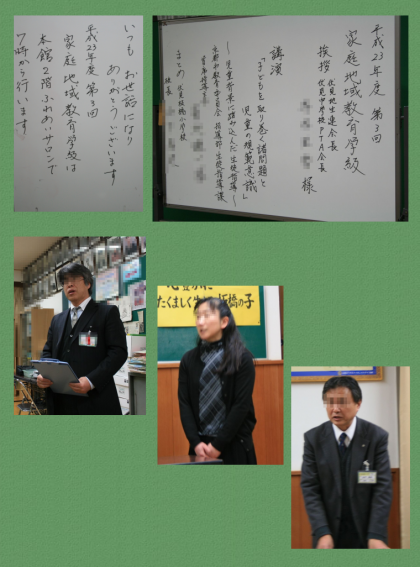 いつも お世話になり
ありがとうございます
平成23年度 第3回
家庭地域教育学級は
本館2階ふれあいサロンで
7時から行います
平成23年度 第3回
家庭地域教育学級
挨拶 伏見地生連会長
伏見中学校PTA会長
様
講演
「子どもを取り巻く諸問題と
児童の規範意識」
〜児童背景に踏み込んだ生徒指導〜
京都市教育委員会 指導部 生徒指導課
まとめ 伏見板橋小学校
校長
たくましく
橋の子